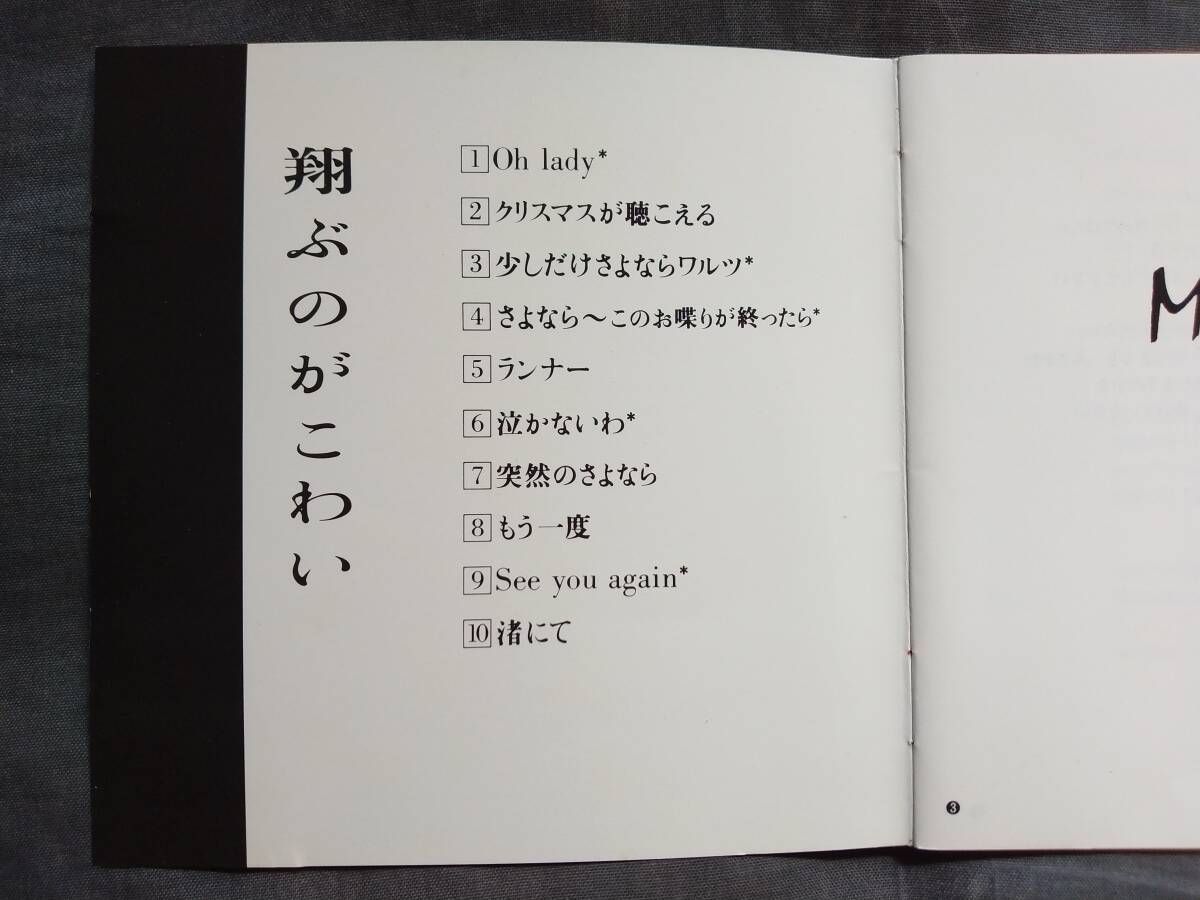 翔ぶのがこわい
1 Oh lady*
2 クリスマスが聴こえる
3 少しだけさよならワルツ*
4 さよなら〜このお喋りが終ったら*
5 ランナー
6 泣かないわ*
7 突然のさよなら
8 もう一度
9 See you again*
10 渚にて
M
3